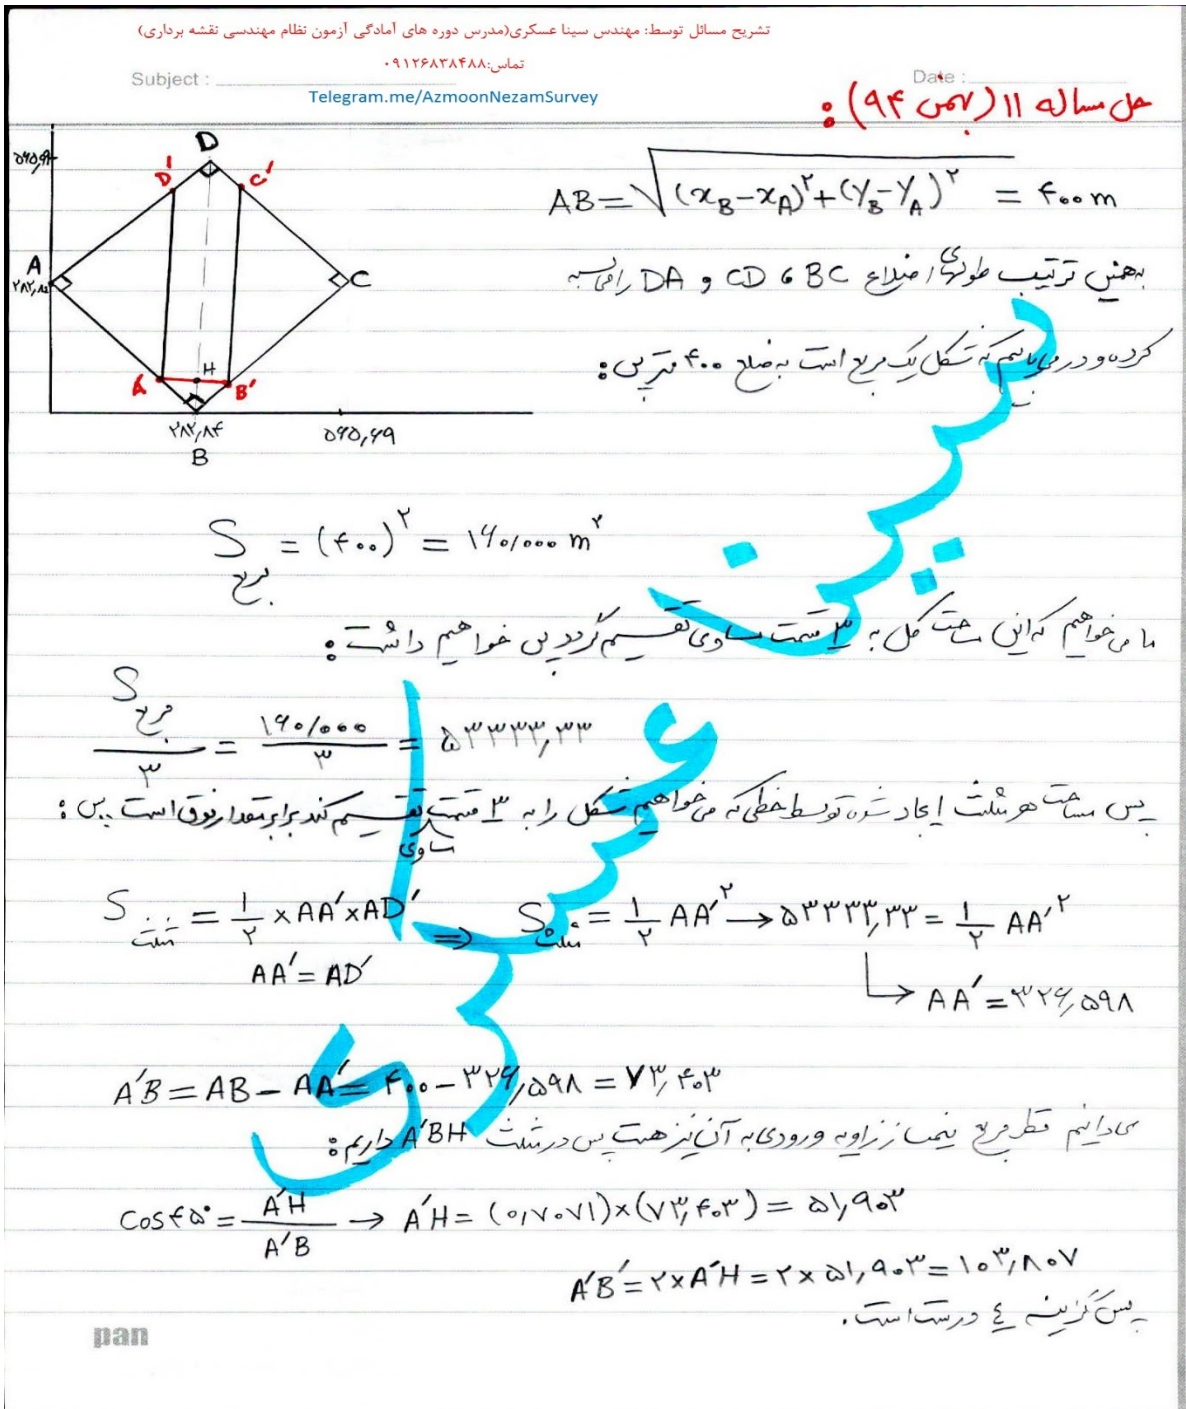 تشریح مسائل توسط: مهندس سینا عسکری(مدرس دوره های آمادگی آزمون نظام مهندسی نقشه برداری)
تماس:۰۹۱۲۶۸۳۸۴۸۸
Subject :
Date :
Telegram.me/AzmoonNezamSurvey
حل مساله ۱۱ (بهمن ۹۴):
D
۵۶۵,۶۹
D' C'
A
C
H
A' B'
۲۸۲,۸۴ ۵۶۵,۶۹
B
AB=√(x_B-x_A)^۲+(y_B-y_A)^۲ = ۴۰۰ m
به همین ترتیب طولهای اضلاع BC و CD و DA را محاسبه
کرده و در می یابیم که شکل یک مربع است به ضلع ۴۰۰ متر پس:
S مربع = (۴۰۰)^۲ = ۱۶۰/۰۰۰ m^۲
ما می خواهیم که این مساحت کل به ۳ قسمت مساوی تقسیم گردد پس خواهیم داشت:
S مربع / ۳ = ۱۶۰/۰۰۰ / ۳ = ۵۳۳۳۳,۳۳
پس مساحت هر مثلث ایجاد شده توسط خطی که می خواهیم شکل را به ۳ قسمت مساوی تقسیم کند برابر مقدار فوق است پس:
S مثلث = ۱/۲ × AA' × AD' ⇒ S مثلث = ۱/۲ AA'^۲ → ۵۳۳۳۳,۳۳ = ۱/۲ AA'^۲
AA' = AD'
→ AA' = ۳۲۶,۵۹۸
A'B = AB - AA' = ۴۰۰ - ۳۲۶,۵۹۸ = ۷۳,۴۰۳
می دانیم قطر مربع نیمساز زاویه ورودی به آن نیز هست پس در مثلث A'BH داریم:
cos ۴۵° = A'H / A'B → A'H = (۰,۷۰۷۱)×(۷۳,۴۰۳) = ۵۱,۹۰۳
A'B' = ۲ × A'H = ۲ × ۵۱,۹۰۳ = ۱۰۳,۸۰۷
پس گزینه ۴ درست است.
سین
عسکری
pan